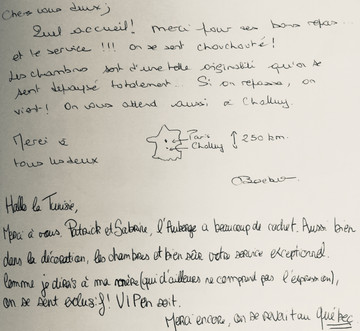 Chers vous deux,
Quel accueil! Merci pour ses bons repas...
et le service !!! On se sent chouchouté!
Les chambres sont d'une telle originalité qu'on se
sent dépaysé totalement... Si on repasse, on
vient! On vous attend aussi à Challuy.
Merci à
tous les deux
Paris
Challuy
250 km.
Hello la Tunisie,
Merci à vous, Patrick et Sabrine, l'Auberge a beaucoup de cachet. Aussi bien
dans la décoration, les chambres et bien sûre votre service exceptionnel.
Comme je dirais à ma (qui d'ailleurs ne comprend pas l'expression),
on se sent exclusif! VIP en soit.
Merci encore, on se revoit au Québec